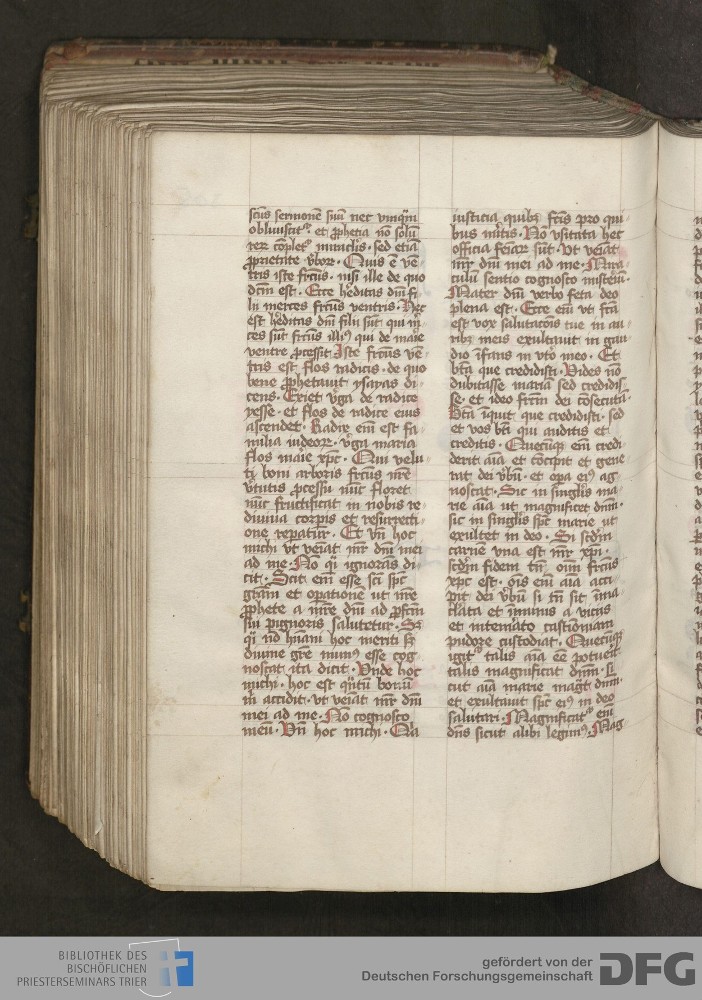 scūs sermonē suū nec vmq̄m
obliuiscit᷑. et ꝓphetia nō solū
rerꝝ cōplet᷑ miraclis. sed etiā
ꝓprietate v̄borꝝ. Quis ē vē
tris iste frc̄us. nisi ille de quo
dc̄m est. Ecce h̄editas dn̄i fi
lii merces frc̄us ventris. Hec
est h̄editas dn̄i filii sūt qui m̄
ces sūt frc̄us illiꝰ qui de mar̄ie
ventre ꝓcessit. Iste frc̄us vē
tris est flos radicis. de quo
bene ꝓphetauit ysayas di
cens. Exiet v̄ga de radice
yesse. et flos de radice eius
ascendet. Radix em̄ est fa
milia iudeorꝝ. v̄ga maria
flos mar̄ie xp̄c. Qui velu
ti boni arboris frc̄us nr̄e
v̄tutis ꝓcessu nūc floret
nūc fructificat in nobis re
diuiua corp̄is et resurrecti
one repatur᷑. Et vn̄ hoc
michi vt veīat mr̄ dn̄i mei
ad me. Nō q̄i ignorās di
cit. Scit em̄ esse sc̄i sp̄c
gram̄ et opationē ut mr̄e
ꝓphete a mr̄e dn̄i ad ꝓfcm̄
sui pignoris salutetur. Sꝫ
q̄i nō hūani hoc meriti sꝫ
diuine grē munꝰ esse cog
noscat ita dicit. Vnde hoc
michi. hoc est q̄ntū bonū
m̄ accidit. vt veīat mr̄ dn̄i
mei ad me. Nō cognosco
meū. Vn̄ hoc michi. Qua
iusticia quibꝫ fc̄is pro qui
bus mitis. Nō vsitata hec
officia feīarꝝ sūt. Vt veīat
mr̄ dn̄i mei ad me. Mira
culū sentio cognosco misteiū.
Mater dn̄i verbo feta deo
plena est. Ecce em̄ vt fc̄a
est vox salutacōis tue in au
ribꝫ meis exultauit in gau
dio īfans in vt̄o meo. Et
bt̄a que credidisti. Vides nō
dubitasse maria sed credidis
se. et ideo frc̄m dei cōsecuta.
Bt̄a inquit que credidisti. sed
et vos bt̄i qui auditis et
creditis. Quecūqꝫ em̄ credi
derit aīa et cōcipit et gene
rat dei v̄bū. et opa eiꝰ ag
noscat. Sic in singl̄is ma
rie aīa ut magnificet dn̄m.
sic in singl̄is sp̄c marie ut
exultet in deo. Si scd̄m
carnē vna est mr̄ xp̄i.
scd̄m fidem tn̄ oīm frc̄us
xp̄c est. oīs em̄ aīa acci
pit dei v̄bū si tn̄ sit īma
cl̄ata et īmunis a viciis
et intemāto castimoniam
pudore custodiat. Quecūqꝫ
igit᷑ talis aīa ēē potuerit
talis magnificat dn̄m. si
cut aīa marie maḡt dn̄m.
et exultauit sp̄c eiꝰ in deo
salutari. Magnificat᷑ em̄
dn̄s sicut alibi legimꝰ. Mag
BIBLIOTHEK DES
BISCHÖFLICHEN
PRIESTERSEMINARS TRIER
gefördert von der
Deutschen Forschungsgemeinschaft
DFG